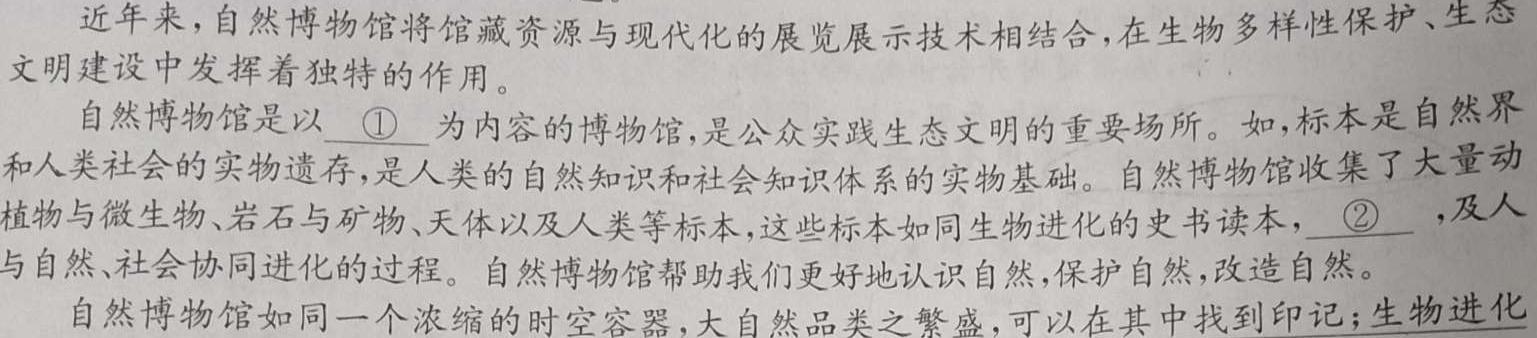 近年来,自然博物馆将馆藏资源与现代化的展览展示技术相结合,在生物多样性保护、生态
文明建设中发挥着独特的作用。
自然博物馆是以 ① 为内容的博物馆,是公众实践生态文明的重要场所。如,标本是自然界
和人类社会的实物遗存,是人类的自然知识和社会知识体系的实物基础。自然博物馆收集了大量动
植物与微生物、岩石与矿物、天体以及人类等标本,这些标本如同生物进化的史书读本, ② ,及人
与自然、社会协同进化的过程。自然博物馆帮助我们更好地认识自然,保护自然,改造自然。
自然博物馆如同一个浓缩的时空容器,大自然品类之繁盛,可以在其中找到印记;生物进化